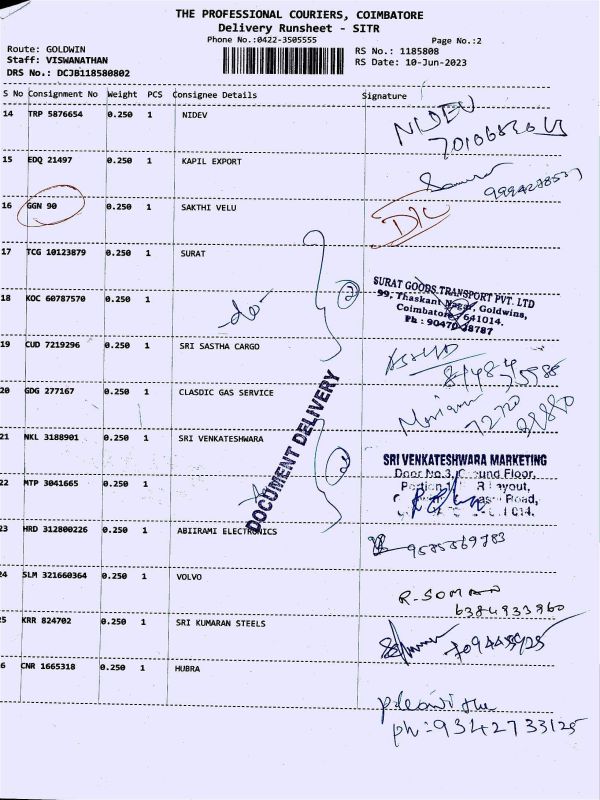 THE PROFESSIONAL COURIERS, COIMBATORE
Delivery Runsheet - SITR
Phone No.:0422-3505555 Page No.:2
Route: GOLDWIN RS No.: 1185808
Staff: VISWANATHAN RS Date: 10-Jun-2023
DRS No.: DCJB118580802
S No Consignment No Weight PCS Consignee Details Signature
14 TRP 5876654 0.250 1 NIDEV NIDEV
15 EDQ 21497 0.250 1 KAPIL EXPORT
16 GGN 90 0.250 1 SAKTHI VELU D/C
17 TCG 10123879 0.250 1 SURAT
18 KOC 60787570 0.250 1 -do- 2
SURAT GOODS TRANSPORT PVT. LTD
99, Thaskant Nagar, Goldwins,
Coimbatore, 641014.
Ph : 90470 28787
19 CUD 7219296 0.250 1 SRI SASTHA CARGO
20 GDG 277167 0.250 1 CLASDIC GAS SERVICE
DOCUMENT DELIVERY
21 NKL 3188901 0.250 1 SRI VENKATESHWARA 2
SRI VENKATESHWARA MARKETING
Door No.3, Ground Floor,
22 MTP 3041665 0.250 1
Layout,
Road,
23 HRD 312800226 0.250 1 ABIIRAMI ELECTRONICS 9585569783
24 SLM 321660364 0.250 1 VOLVO R. SOMAN
6384933960
25 KRR 824702 0.250 1 SRI KUMARAN STEELS
26 CNR 1665318 0.250 1 HUBRA
ph:9342733125